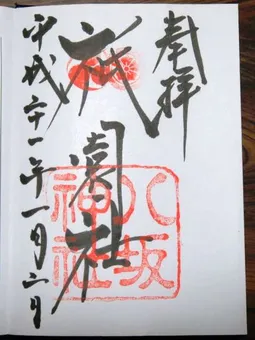 奉拝
祇園社
八坂神社
平成二十一年一月二日